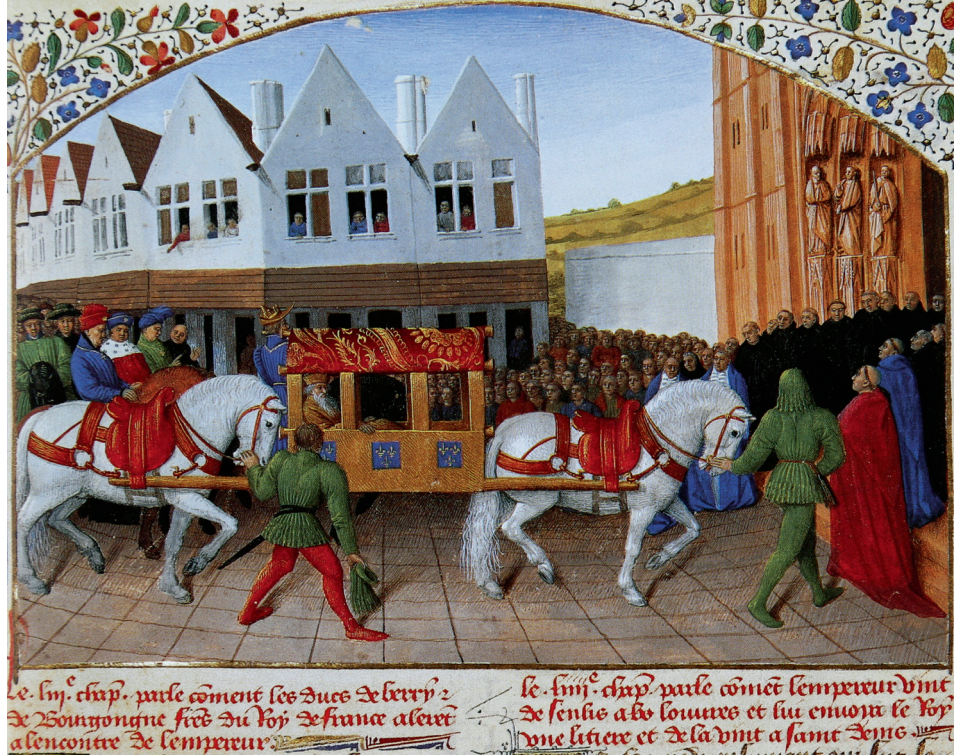 Le .liiie. chap. parle cõment les ducs de berry ⁊
de Bourgongne fres du Roy de france alerẽt
a lencontre de lempereur.
le .liiiie. chap. parle cõmẽt lempereur vint
de senlis a bo louures et lui enuoya le Roy
vne litiere et de la vint a saint denis